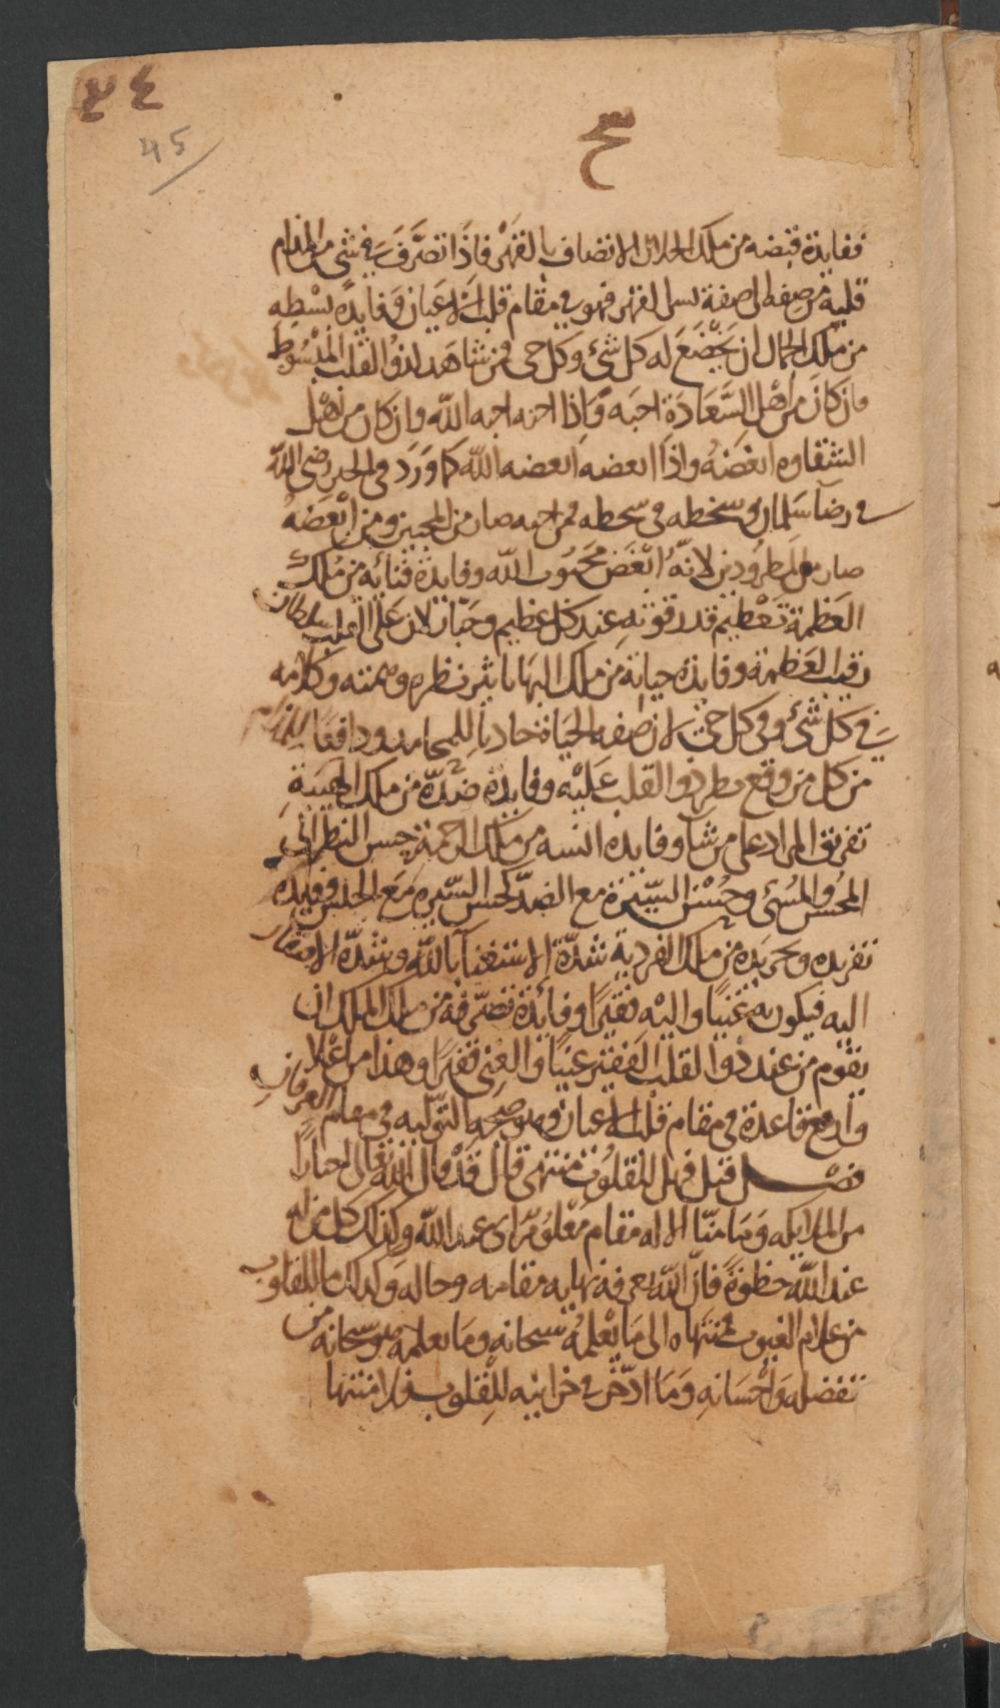 ٤٤
45
ففايدة قبضه من ملك الجلال الاتصاف بالقهر فاذا تصرف في شي من
قلبه من صفة الى صفة القهر فهو في مقام قلب الاعيان وفايدة بسطه
من ملك الجمال ان يخضع له كل شئ وكل حي فمن شاهد لذو القلب المبسوط
فان كان من اهل السعادة احبه واذا احبه احبه الله وان كان من اهل
الشقاوه ابغضه واذا ابغضه ابغضه الله كما ورد في الخبر رضى الله
في رضا سلمان وسخطه في سخطه فمن احبه صار من المحبين ومن ابغضه
صار من المطرودين لانه ابغض محبوب الله وفايدة فنائه من ملك
العظمة تعظيم قدر قوته عند كل عظيم وجبار لان على القلب سلطان
رقيب العظمة وفايدة حياته من ملك البها تاثير نظره وهمته وكلامه
في كل شئ وفي كل حي لان صفة الحياة جاذبا للمحامد ودافعا
من كل من وقع نظر ذوا القلب عليه وفايدة ضده من ملك الهيبة
تفريق المراد على من شا وفايده انسه من ملك الرحمة حسن النظر الى
المحسن والمسئ وحسن السيرة مع الضد كحسن السيره مع الجليس وفايدة
تفريده وتجريده من ملك الفردية شدة الاستغنا بالله وشدة الافتقار
اليه فيكون به غنيا واليه فقيرا وفائدة تصرفه من ملك الملك ان
يقوم من عند ذوا القلب الفقير غنيا والغنى فقيرا وهذا من اعلا
وارفع قاعدة في مقام قلب الاعيان وهو صحة التولية في مقام العرفان
فصل قيل فهل للقلوب منتهى قال قد قال الله تعالى اخبارا
من الملايكه وما منا الا له مقام معلوم اى عند الله وكذلك كل من له
عند الله حظوة فان الله يعرفه نهاية مقامه وحاله وكذلك ما للقلوب
من علام الغيوب فمنتهاه الى ما يعلمه سبحانه وما يعلمه هو سبحانه من
تفضله واحسانه وما ادخر في خزاينه للقلوب فلا منتها